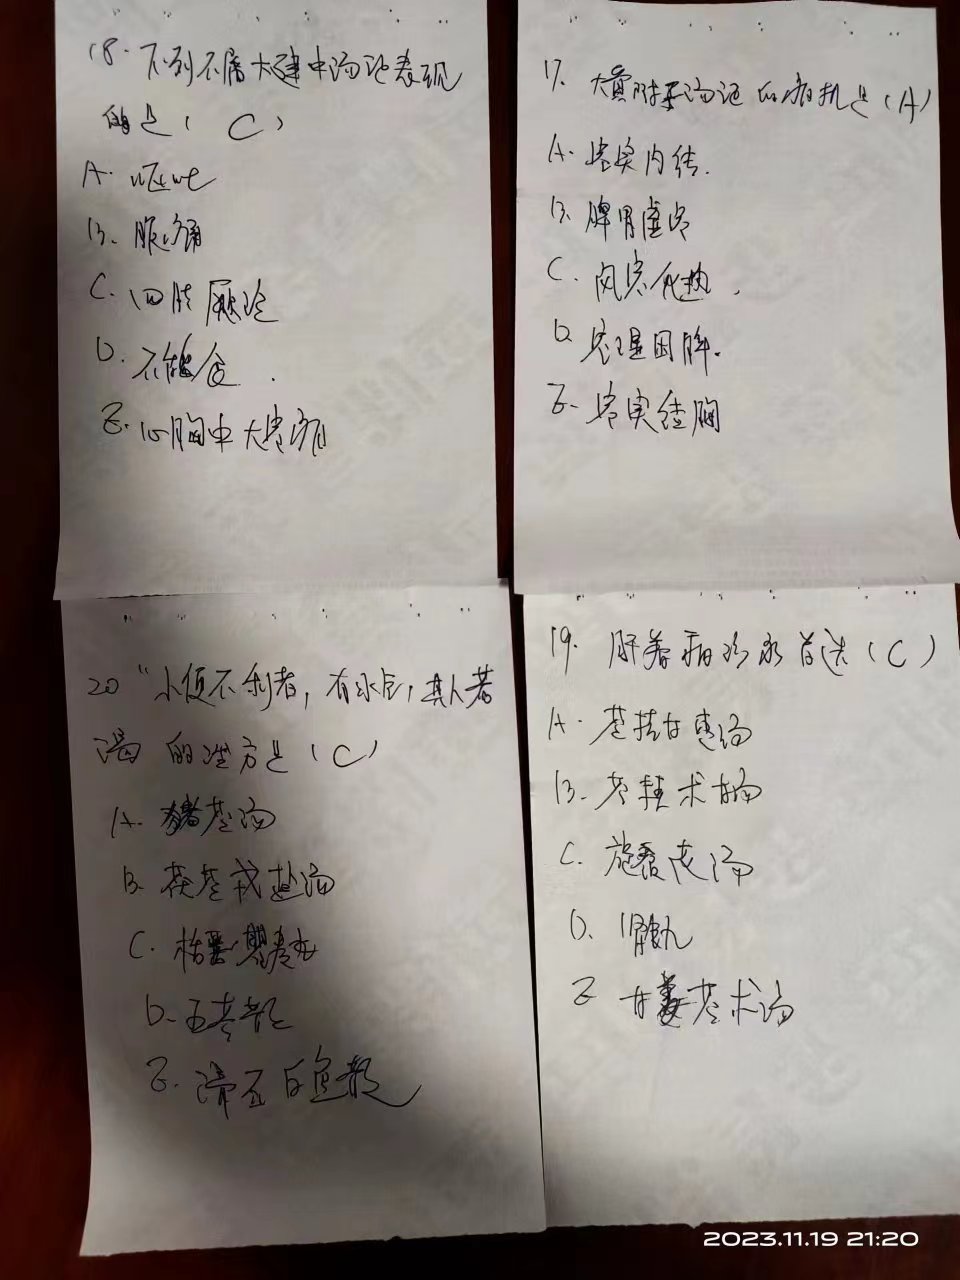 18. 下列不属大建中汤证表现
的是( C )
A. 呕吐
B. 腹痛
C. 四肢厥冷
D. 不能食.
E. 心胸中大寒痛
17. 大黄附子汤证的病机是(A)
A. 寒实内结.
B. 脾胃虚寒
C. 风寒化热.
D. 寒湿困脾.
E. 寒实结胸
20 "小便不利者,有水气,其人若
渴 的选方是(C)
A. 猪苓汤
B. 茯苓戎盐汤
C. 栝蒌瞿麦丸
D. 五苓散
E. 滑石白鱼散
19. 肝着病 首选(C)
A. 苓桂甘枣汤
B. 苓桂术甘汤
C. 旋覆花汤
D. 肾气丸
E 甘姜苓术汤
2023.11.19 21:20